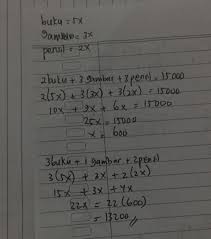 buku = 5x
gambar = 3x
pensil = 2x
2 buku + 3 gambar + 3 pensil = 15000
2(5x) + 3(3x) + 3(2x) = 15000
10x + 9x + 6x = 15000
25x = 15000
x = 600
3 buku + 1 gambar + 2 pensil
3(5x) + 3x + 2(2x)
15x + 3x + 4x
22x = 22(600)
= 13200 //